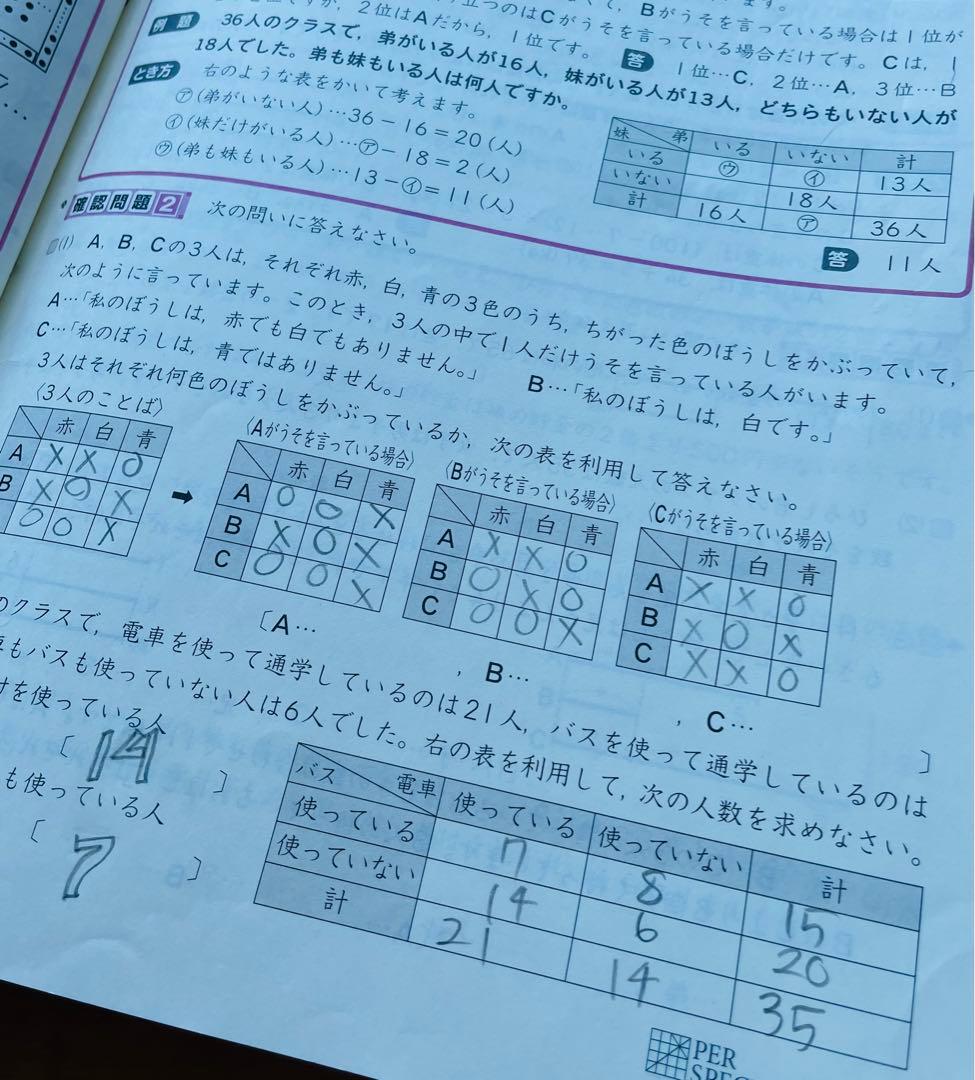 うそを言っている場合は1位が
2位はAだから，1位です。
つのはCがうそを言っている場合だけです。Cは，1
答 1位…C，2位…A，3位…B
例題 36人のクラスで，弟がいる人が16人，妹がいる人が13人，どちらもいない人が
18人でした。弟も妹もいる人は何人ですか。
とき方 右のような表をかいて考えます。
㋐(弟がいない人)…36－16＝20(人)
㋑(妹だけがいる人)…㋐－18＝2(人)
㋒(弟も妹もいる人)…13－㋑＝11(人)
妹 弟 いる いない 計
いる ㋒ ㋑ 13人
いない 18人
計 16人 ㋐ 36人
答 11人
確認問題2 次の問いに答えなさい。
(1) A，B，Cの3人は，それぞれ赤，白，青の3色のうち，ちがった色のぼうしをかぶっていて，
次のように言っています。このとき，3人の中で1人だけうそを言っている人がいます。
A…「私のぼうしは，赤でも白でもありません。」 B…「私のぼうしは，白です。」
C…「私のぼうしは，青ではありません。」
3人はそれぞれ何色のぼうしをかぶっているか，次の表を利用して答えなさい。
〈3人のことば〉
赤 白 青
A × × ○
B × ○ ×
○ ○ ×
➡
〈Aがうそを言っている場合〉
赤 白 青
A ○ ○ ×
B × ○ ×
C ○ ○ ×
〈Bがうそを言っている場合〉
赤 白 青
A × × ○
B ○ × ○
C ○ ○ ×
〈Cがうそを言っている場合〉
赤 白 青
A × × ○
B × ○ ×
C × × ○
〔A… ，B… ，C… 〕
のクラスで，電車を使って通学しているのは21人，バスを使って通学しているのは
もバスも使っていない人は6人でした。右の表を利用して，次の人数を求めなさい。
けを使っている人
〔 14 〕
も使っている人
〔 7 〕
バス 電車 使っている 使っていない 計
使っている 7 8 15
使っていない 14 6 20
計 21 14 35
PER
SPEC